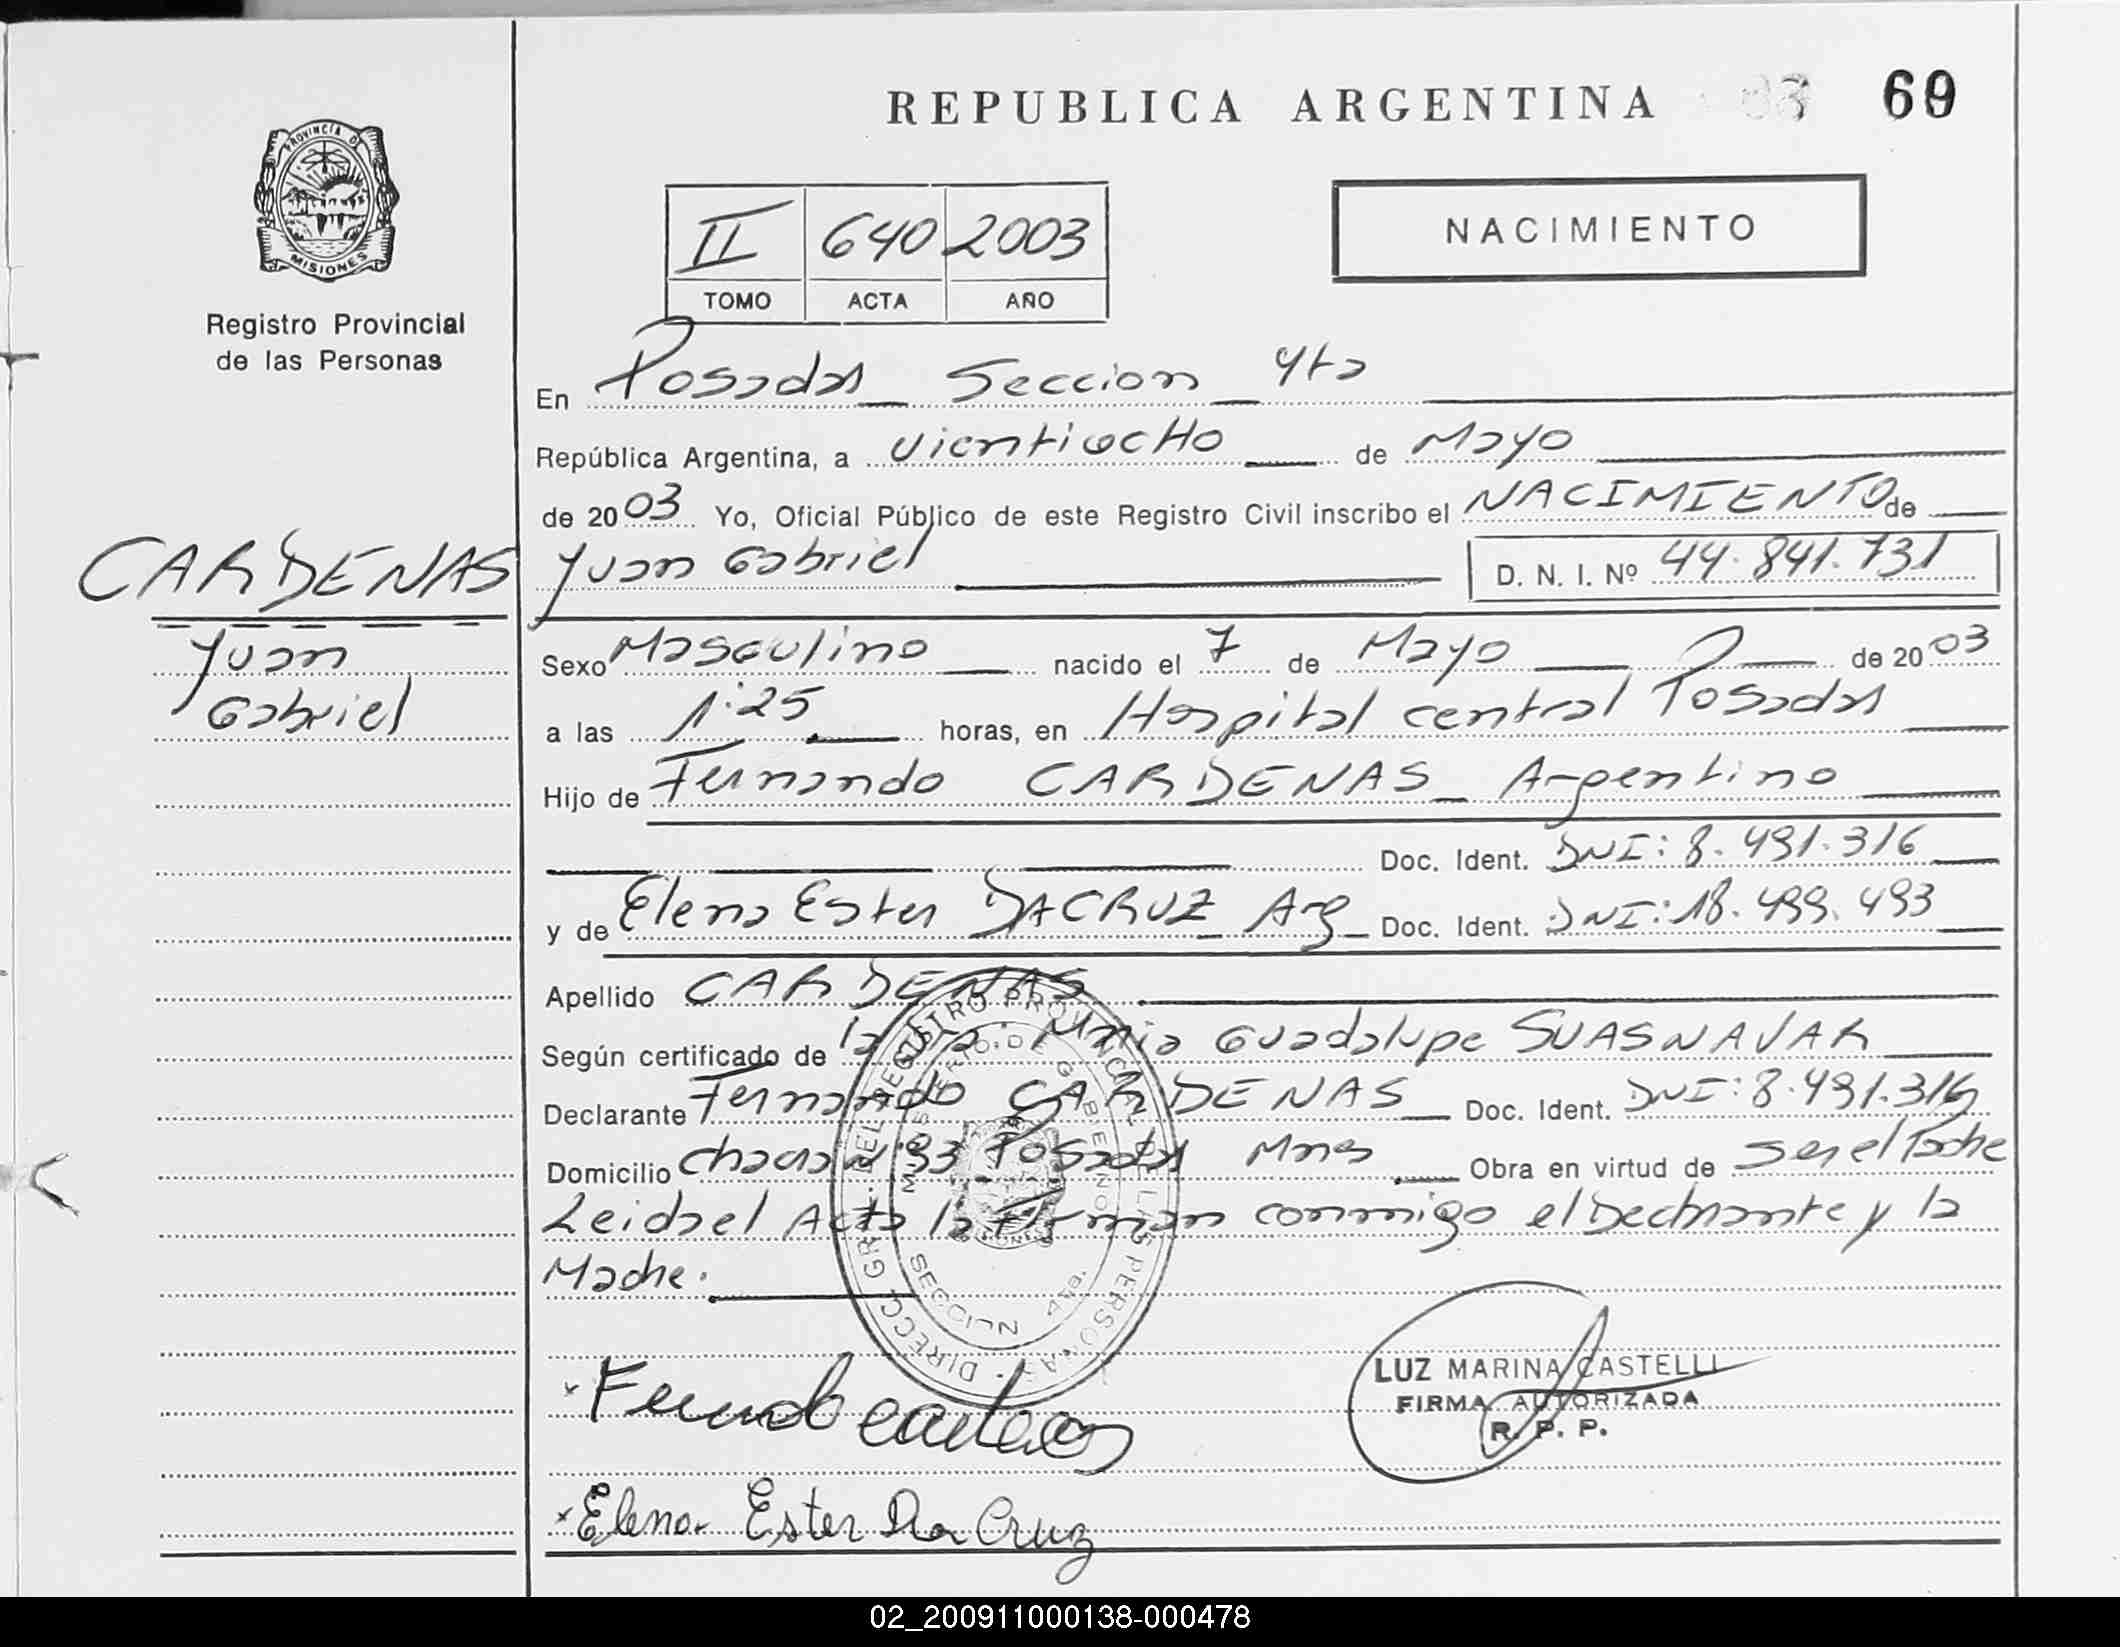 REPUBLICA ARGENTINA 69
PROVINCIA DE
MISIONES
Registro Provincial
de las Personas
II 640 2003
TOMO ACTA AÑO
NACIMIENTO
En Posadas Seccion 4ta
República Argentina, a vientiocHo de Mayo
de 2003 Yo, Oficial Público de este Registro Civil inscribo el NACIMIENTO de
CARDENAS
Juan Gabriel D. N. I. Nº 44.841.731
Juan
Gabriel
Sexo Masculino nacido el 7 de Mayo de 2003
a las 1:25 horas, en Hospital central Posadas
Hijo de Fernando CARDENAS Argentino
Doc. Ident. DNI: 8.491.316
y de Elena Ester DACRUZ Arg Doc. Ident. DNI: 18.499.493
Apellido CARDENAS
Según certificado de la Guadalupe SUASNAVAR
Declarante Fernando CARDENAS Doc. Ident. DNI: 8.491.316
Domicilio Chacra 93 Posadas Mnes Obra en virtud de ser el Padre
Leida el Acta la firman conmigo el Declarante y la
Madre.
DIRECC. GRAL. DEL REGISTRO PROVINCIAL DE LAS PERSONAS
MINISTERIO DE GOBIERNO
SECCION 4ta.
Fernando Cardenas
LUZ MARINA CASTELLI
FIRMA AUTORIZADA
R. P. P.
Elena Ester Da Cruz
02_200911000138-000478